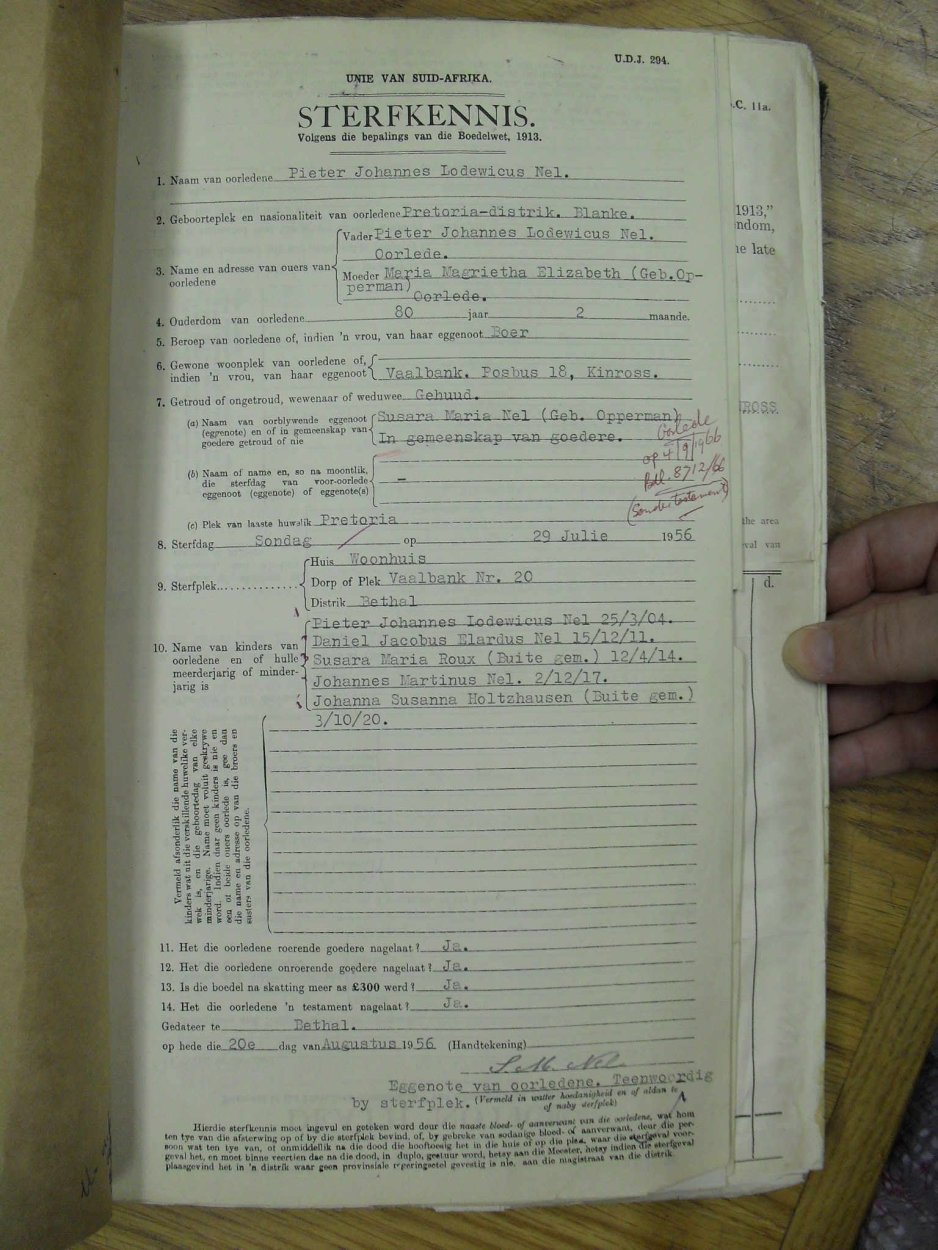 U.D.J. 294.
UNIE VAN SUID-AFRIKA.
STERFKENNIS.
Volgens die bepalings van die Boedelwet, 1913.
1. Naam van oorledene Pieter Johannes Lodewicus Nel.
2. Geboorteplek en nasionaliteit van oorledene Pretoria-distrik. Blanke.
3. Name en adresse van ouers van oorledene
Vader Pieter Johannes Lodewicus Nel.
Oorlede.
Moeder Maria Magrietha Elizabeth (Geb.Op-
perman)
Oorlede.
4. Ouderdom van oorledene 80 jaar 2 maande.
5. Beroep van oorledene of, indien 'n vrou, van haar eggenoot Boer
6. Gewone woonplek van oorledene of,
indien 'n vrou, van haar eggenoot Vaalbank. Posbus 18, Kinross.
7. Getroud of ongetroud, wewenaar of weduwee Gehuud.
(a) Naam van oorblywende eggenoot
(eggenote) en of in gemeenskap van
goedere getroud of nie
Susara Maria Nel (Geb. Opperman)
In gemeenskap van goedere.
Oorlede
op 4/9/1966
Bdl. 8712/66
(Sonder testament)
(b) Naam of name en, so na moontlik,
die sterfdag van voor-oorlede
eggenoot (eggenote) of eggenote(s) -
(c) Plek van laaste huwelik Pretoria
8. Sterfdag Sondag op 29 Julie 1956
9. Sterfplek
Huis Woonhuis
Dorp of Plek Vaalbank Nr. 20
Distrik Bethal
10. Name van kinders van
oorledene en of hulle
meerderjarig of minder-
jarig is
Pieter Johannes Lodewicus Nel 25/3/04.
Daniel Jacobus Elardus Nel 15/12/11.
Susara Maria Roux (Buite gem.) 12/4/14.
Johannes Martinus Nel. 2/12/17.
Johanna Susanna Holtzhausen (Buite gem.)
3/10/20.
Vermeld afsonderlik die name van die
kinders wat uit die verskillende huwelike ver-
wek is, en die geboortedag van elke
minderjarige. Name moet voluit geskrywe
word. Indien daar geen kinders is nie en
een of beide ouers oorlede is, gee dan
die name en adresse op van die broers en
susters van die oorledene.
11. Het die oorledene roerende goedere nagelaat? Ja.
12. Het die oorledene onroerende goedere nagelaat? Ja.
13. Is die boedel na skatting meer as £300 werd? Ja.
14. Het die oorledene 'n testament nagelaat? Ja.
Gedateer te Bethal.
op hede die 20e dag van Augustus 1956 (Handtekening)
S.M. Nel.
Eggenote van oorledene. Teenwoordig
by sterfplek. (Vermeld in watter hoedanigheid en of aldan te
of naby sterfplek)
Hierdie sterfkennis moet ingevul en geteken word deur die naaste bloed- of aanverwant van die oorledene, wat hom
ten tye van die afsterwing op of by die sterfplek bevind, of, by gebreke van sodanige bloed- of aanverwant, deur die per-
soon wat ten tye van, of onmiddellik na die dood die hooftoesig het in die huis of op die plek, waar die sterfgeval voor-
geval het, en moet binne veertien dae na die dood, in duplo, gestuur word, hetsy aan die Meester, hetsy indien die sterfgeval
plaasgevind het in 'n distrik waar geen provinsiale regeringsetel gevestig is nie, aan die magistraat van die distrik.
.C. 11a.
1913,"
ndom,
he late
ROSS.
the area
val van
d.